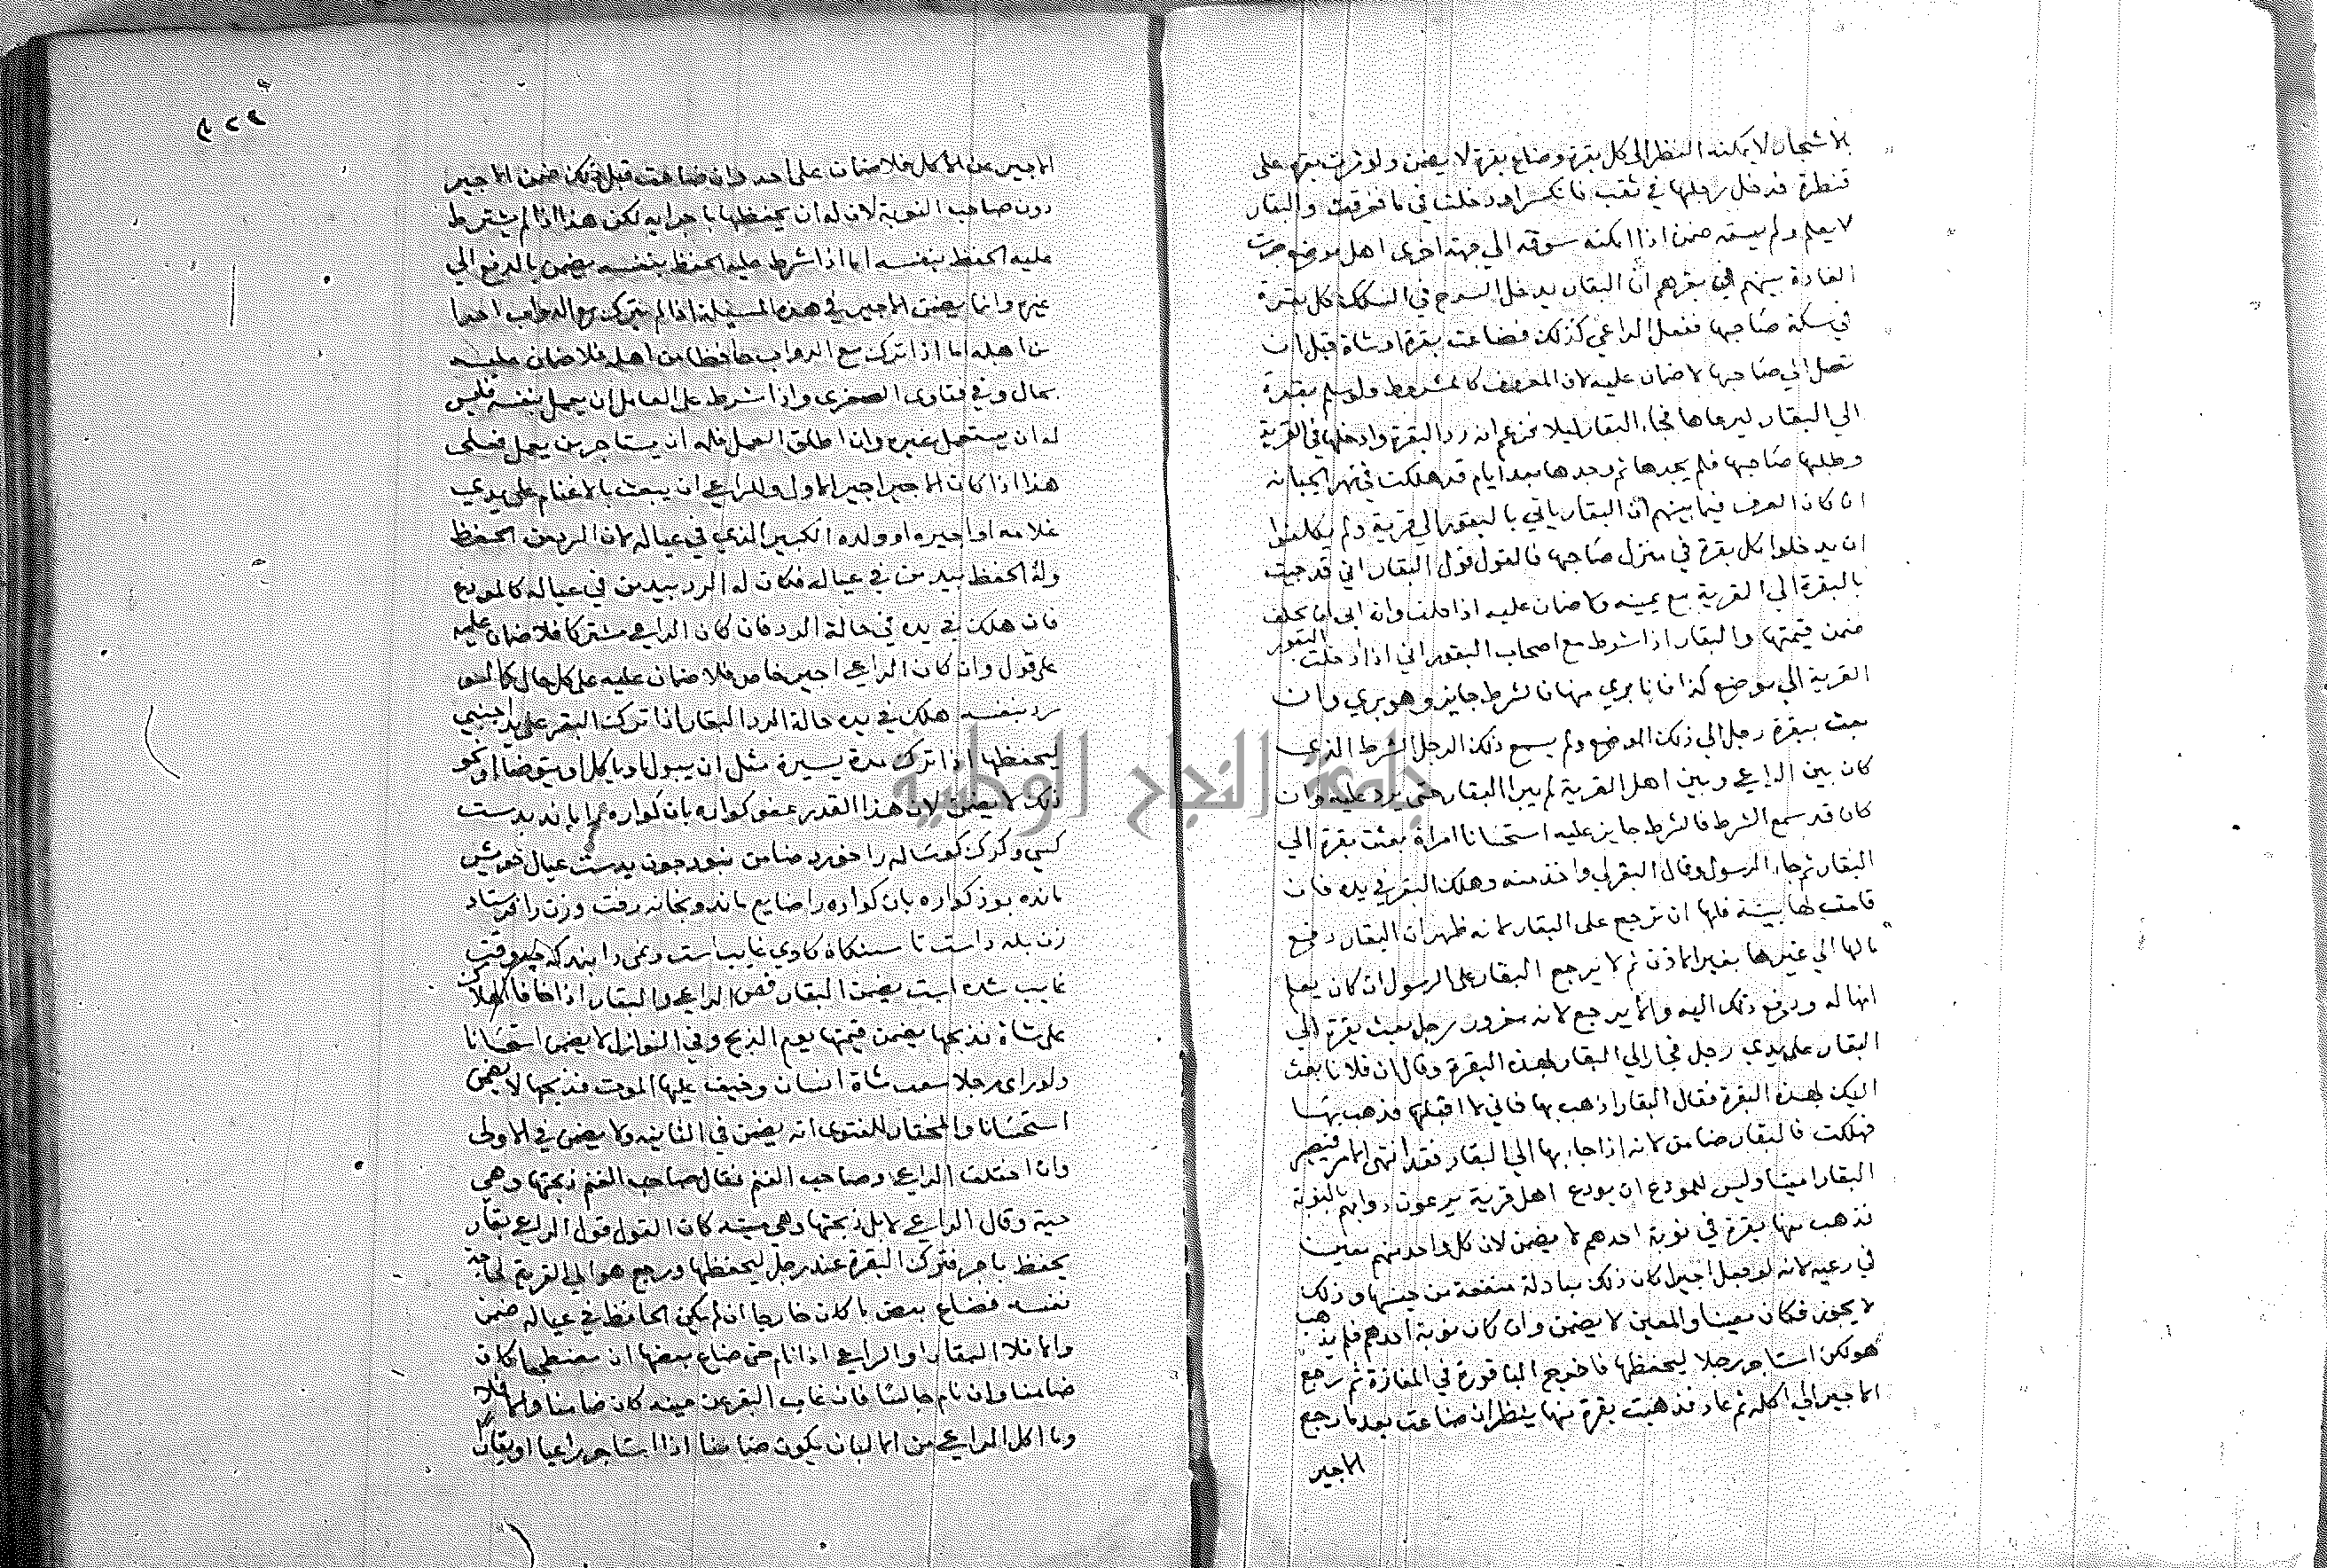 بالاشجار لا يمكنه النظر الى كل بقرة وضاع بقرة لا يضمن ولو مرت بقرة على
قنطرة فدخل رجلها في ثقب فانكسر او دخلت في ما فغرقت والبقار
لا يعلم ولم يسقه ضمن اذا امكنه سوقه الي جهة اخرى اهل موضع جرت
العادة بينهم في بقرهم ان البقار يدخل السرح في السكك كل بقرة
في سكة صاحبها ففعل الراعي كذلك فضاعت بقرة او شاة قبل ان
تصل الي صاحبها لا ضمان عليه لان المعروف كالمشروط ولو سلم بقرة
الي البقار ليرعاها فجاء البقار ليلا فزعم انه رد البقرة وادخلها في القرية
وطلبها صاحبها فلم يجدها ثم وجدها بعد ايام قد هلكت في نهر الجبانة
ان كان العرف فيما بينهم ان البقار ياتي بالبقور الي قرية ولم يكلفوا
ان يدخلوا كل بقرة في منزل صاحبها فالقول قول البقار اني قد جيت
بالبقرة الي القرية مع يمينه ولا ضمان عليه اذا حلف وان ابى ان يحلف
ضمن قيمتها والبقار اذا شرط مع اصحاب البقور اني اذا ادخلت البقور
القرية الي موضع كذا فانا بري منها فالشرط جايز وهو بري وان
بعث ببقرة رجل الي ذلك الموضع ولم يسمع ذلك الرجل الشرط الذي
كان بين الراعي وبين اهل القرية لم يبرا البقار حتى يرد عليه وان
كان قد سمع الشرط فالشرط جايز عليه استحسانا امراة بعثت بقرة الي
البقار ثم جاء الرسول وقال البقر لي واخذ منه وهلك البقر في يده فان
قامت لها بينة فلها ان ترجع على البقار لانه ظهر ان البقار دفع
مالها الي غيرها بغير الاذن ثم لا يرجع البقار على الرسول ان كان يعلم
انها له ودفع ذلك اليه والا يرجع لانه مغرور رجل بعث بقرة الي
البقار على يدي رجل فجا الي البقار بهذه البقرة وقال ان فلانا بعث
اليك بهذه البقرة فقال البقار اذهب بها فاني لا اقبلها فذهب بها
فهلكت فالبقار ضامن لانه اذا جاء بها الي البقار فقد انتهى الامر فيصير
البقار امينا وليس للمودع ان يودع اهل قرية يرعون دوابهم بالنوبة
فذهب منها بقرة في نوبة احدهم لا يضمن لان كل واحد منهم معين
في رعيه لانه لو جعل اجيرا كان ذلك مبادلة منفعة من جنسها وذلك
لا يجوز فكان معينا والمعين لا يضمن وان كان نوبة احدهم فلم يذهب
هو لكن استاجر رجلا ليحفظها فاخرج الباقورة في المفازة ثم رجع
الاجير الي اكله ثم عاد فذهبت بقرة منها ينظر ان ضاعت بعد ما رجع
الاجير
الاجير عن الاكل فلا ضمان على احد وان ضاعت قبل ذلك ضمن الاجير
دون صاحب النوبة لان له ان يحفظها باجرايه لكن هذا اذا لم يشترط
عليه الحفظ بنفسه اما اذا شرط عليه الحفظ بنفسه يضمن بالدفع الي
غيره وانما يضمن الاجير في هذه المسيلة اذا لم يترك مع الدواب احدا
من اهله اما اذا ترك مع الدواب حافظا من اهله فلا ضمان عليه
بحال وفي فتاوى الصغرى واذا شرط على العامل ان يعمل بنفسه فليس
له ان يستعمل غيره وان اطلق العمل فله ان يستاجر من يعمل فعلى
هذا اذا كان الاجير اجير الاول وللراعي ان يبعث بالاغنام على يدي
غلامه او اجيره او ولده الكبير الذي في عياله لان الرد من الحفظ
وله الحفظ بيد من في عياله فكان له الرد بيد من في عياله كالمودع
فان هلك في يده في حالة الرد فان كان الراعي مشتركا فلا ضمان عليه
على قول وان كان الراعي اجير خاص فلا ضمان عليه على كل حال كما لو
رد بنفسه هلك في يده حالة الرد البقار اذا ترك البقر على يد اجنبي
ليحفظها اذا ترك مدة يسيرة مثل ان يبول او ياكل او يتوضا او نحو
ذلك لا يضمن لان هذا القدر عفو كواره بان كواره بماند بدست
كسي وكرك كوساله را خورد ضامن نبود جون بدست عيال خويش
مانده بود كواره بان كواره را ضايع ماند وبخانه رفت وزن را فرستاد
غايب شده است يضمن البقار قص الراعي والبقار اذا خافا الهلاك
على شاة فذبحها يضمن قيمتها يوم الذبح وفي النوازل لا يضمن استحسانا
ولو راى رجلا شاة انسان وخيف عليها الموت فذبحها لا يضمن
استحسانا والمختار للفتوى انه يضمن في الثانية ولا يضمن في الاولى
وان اختلف الراعي وصاحب الغنم فقال صاحب الغنم ذبحتها وهي
حية وقال الراعي لا بل ذبحتها وهي ميتة كان القول قول الراعي بقار
يحفظ باجر فترك البقرة عند رجل ليحفظها ورجع هو الي القرية لحاجة
نفسه فضاع بعض ما كان خارجا ان لم يكن الحافظ في عياله ضمن
والا فلا البقار او الراعي اذا نام حتى ضاع بعضها ان مضطجعا كان
ضامنا وان نام جالسا فان غاب البقر عن عينه كان ضامنا والا فلا
وما اكل الراعي من الالبان يكون ضامنا اذا استاجر راعيا او بقارا
جامعة النجاح الوطنية